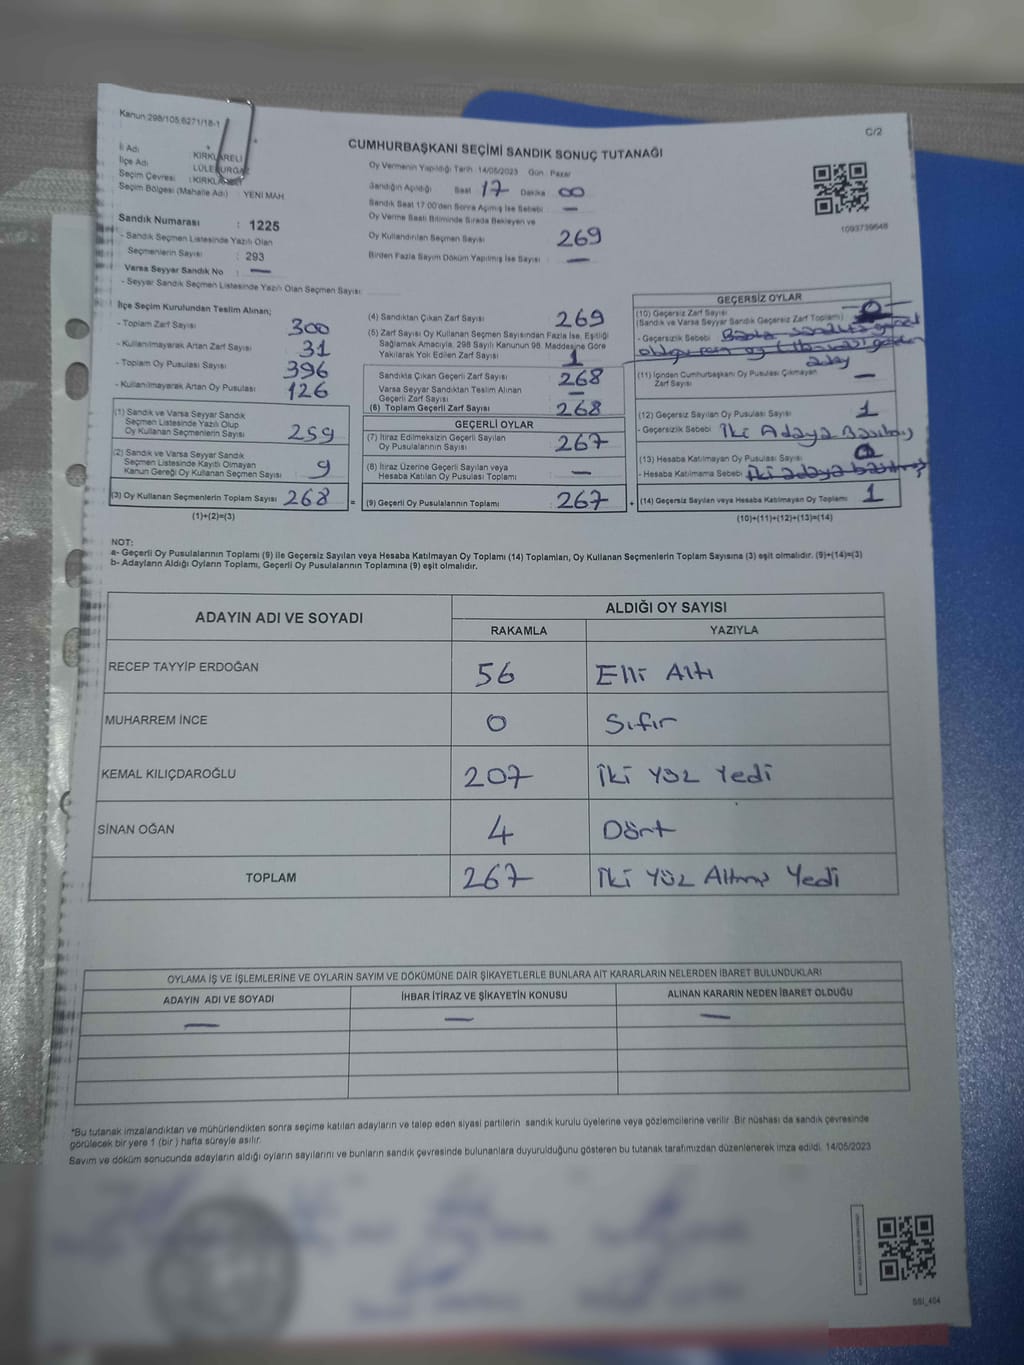 Kanun:298/105;6271/18-1
C/2
CUMHURBAŞKANI SEÇİMİ SANDIK SONUÇ TUTANAĞI
İl Adı KIRKLARELİ
İlçe Adı LÜLEBURGAZ
Seçim Çevresi : KIRKLARELİ
Seçim Bölgesi (Mahalle Adı) YENİ MAH
Sandık Numarası : 1225
- Sandık Seçmen Listesinde Yazılı Olan
Seçmenlerin Sayısı : 293
Varsa Seyyar Sandık No : —
- Seyyar Sandık Seçmen Listesinde Yazılı Olan Seçmen Sayısı:
Oy Vermenin Yapıldığı Tarih: 14/05/2023 Gün : Pazar
Sandığın Açıldığı Saat 17 Dakika 00
Sandık Saat 17:00'den Sonra Açılmış İse Sebebi : —
Oy Verme Saati Bitiminde Sırada Bekleyen ve
Oy Kullandırılan Seçmen Sayısı 269
Birden Fazla Sayım Döküm Yapılmış İse Sayısı : —
1093739648
İlçe Seçim Kurulundan Teslim Alınan;
- Toplam Zarf Sayısı 300
- Kullanılmayarak Artan Zarf Sayısı 31
- Toplam Oy Pusulası Sayısı 396
- Kullanılmayarak Artan Oy Pusulası 126
(1) Sandık ve Varsa Seyyar Sandık
Seçmen Listesinde Yazılı Olup
Oy Kullanan Seçmenlerin Sayısı 259
(2) Sandık ve Varsa Seyyar Sandık
Seçmen Listesinde Kayıtlı Olmayan
Kanun Gereği Oy Kullanan Seçmen Sayısı 9
(3) Oy Kullanan Seçmenlerin Toplam Sayısı 268 =
(1)+(2)=(3)
(4) Sandıktan Çıkan Zarf Sayısı : 269
(5) Zarf Sayısı Oy Kullanan Seçmen Sayısından Fazla İse, Eşitliği
Sağlamak Amacıyla, 298 Sayılı Kanunun 98. Maddesine Göre
Yakılarak Yok Edilen Zarf Sayısı : 1
Sandıkta Çıkan Geçerli Zarf Sayısı : 268
Varsa Seyyar Sandıktan Teslim Alınan
Geçerli Zarf Sayısı : —
(6) Toplam Geçerli Zarf Sayısı : 268
GEÇERLİ OYLAR
(7) İtiraz Edilmeksizin Geçerli Sayılan
Oy Pusulasının Sayısı : 267
(8) İtiraz Üzerine Geçerli Sayılan veya
Hesaba Katılan Oy Pusulası Toplamı : —
(9) Geçerli Oy Pusulalarının Toplamı : 267 +
GEÇERSİZ OYLAR
(10) Geçersiz Zarf Sayısı
(Sandık ve Varsa Seyyar Sandık Geçersiz Zarf Toplamı) :
- Geçersizlik Sebebi :
aday
(11) İçinden Cumhurbaşkanı Oy Pusulası Çıkmayan
Zarf Sayısı : —
(12) Geçersiz Sayılan Oy Pusulası Sayısı : 1
- Geçersizlik Sebebi : İki Adaya Basılmış
(13) Hesaba Katılmayan Oy Pusulası Sayısı :
- Hesaba Katılmama Sebebi : İki adaya basılmış
(14) Geçersiz Sayılan veya Hesaba Katılmayan Oy Toplamı : 1
(10)+(11)+(12)+(13)=(14)
NOT:
a- Geçerli Oy Pusulalarının Toplamı (9) ile Geçersiz Sayılan veya Hesaba Katılmayan Oy Toplamı (14) Toplamları, Oy Kullanan Seçmenlerin Toplam Sayısına (3) eşit olmalıdır. (9)+(14)=(3)
b- Adayların Aldığı Oyların Toplamı, Geçerli Oy Pusulalarının Toplamına (9) eşit olmalıdır.
ADAYIN ADI VE SOYADI ALDIĞI OY SAYISI
RAKAMLA YAZIYLA
RECEP TAYYİP ERDOĞAN 56 Elli Altı
MUHARREM İNCE 0 Sıfır
KEMAL KILIÇDAROĞLU 207 İki Yüz Yedi
SİNAN OĞAN 4 Dört
TOPLAM 267 İki Yüz Altmış Yedi
OYLAMA İŞ VE İŞLEMLERİNE VE OYLARIN SAYIM VE DÖKÜMÜNE DAİR ŞİKAYETLERLE BUNLARA AİT KARARLARIN NELERDEN İBARET BULUNDUKLARI
ADAYIN ADI VE SOYADI İHBAR İTİRAZ VE ŞİKAYETİN KONUSU ALINAN KARARIN NEDEN İBARET OLDUĞU
— — —
*Bu tutanak imzalandıktan ve mühürlendikten sonra seçime katılan adayların ve talep eden siyasi partilerin sandık kurulu üyelerine veya gözlemcilerine verilir. Bir nüshası da sandık çevresinde
görülecek bir yere 1 (bir ) hafta süreyle asılır.
Sayım ve döküm sonucunda adayların aldığı oyların sayılarını ve bunların sandık çevresinde bulunanlara duyurulduğunu gösteren bu tutanak tarafımızdan düzenlenerek imza edildi. 14/05/2023
SSI_404